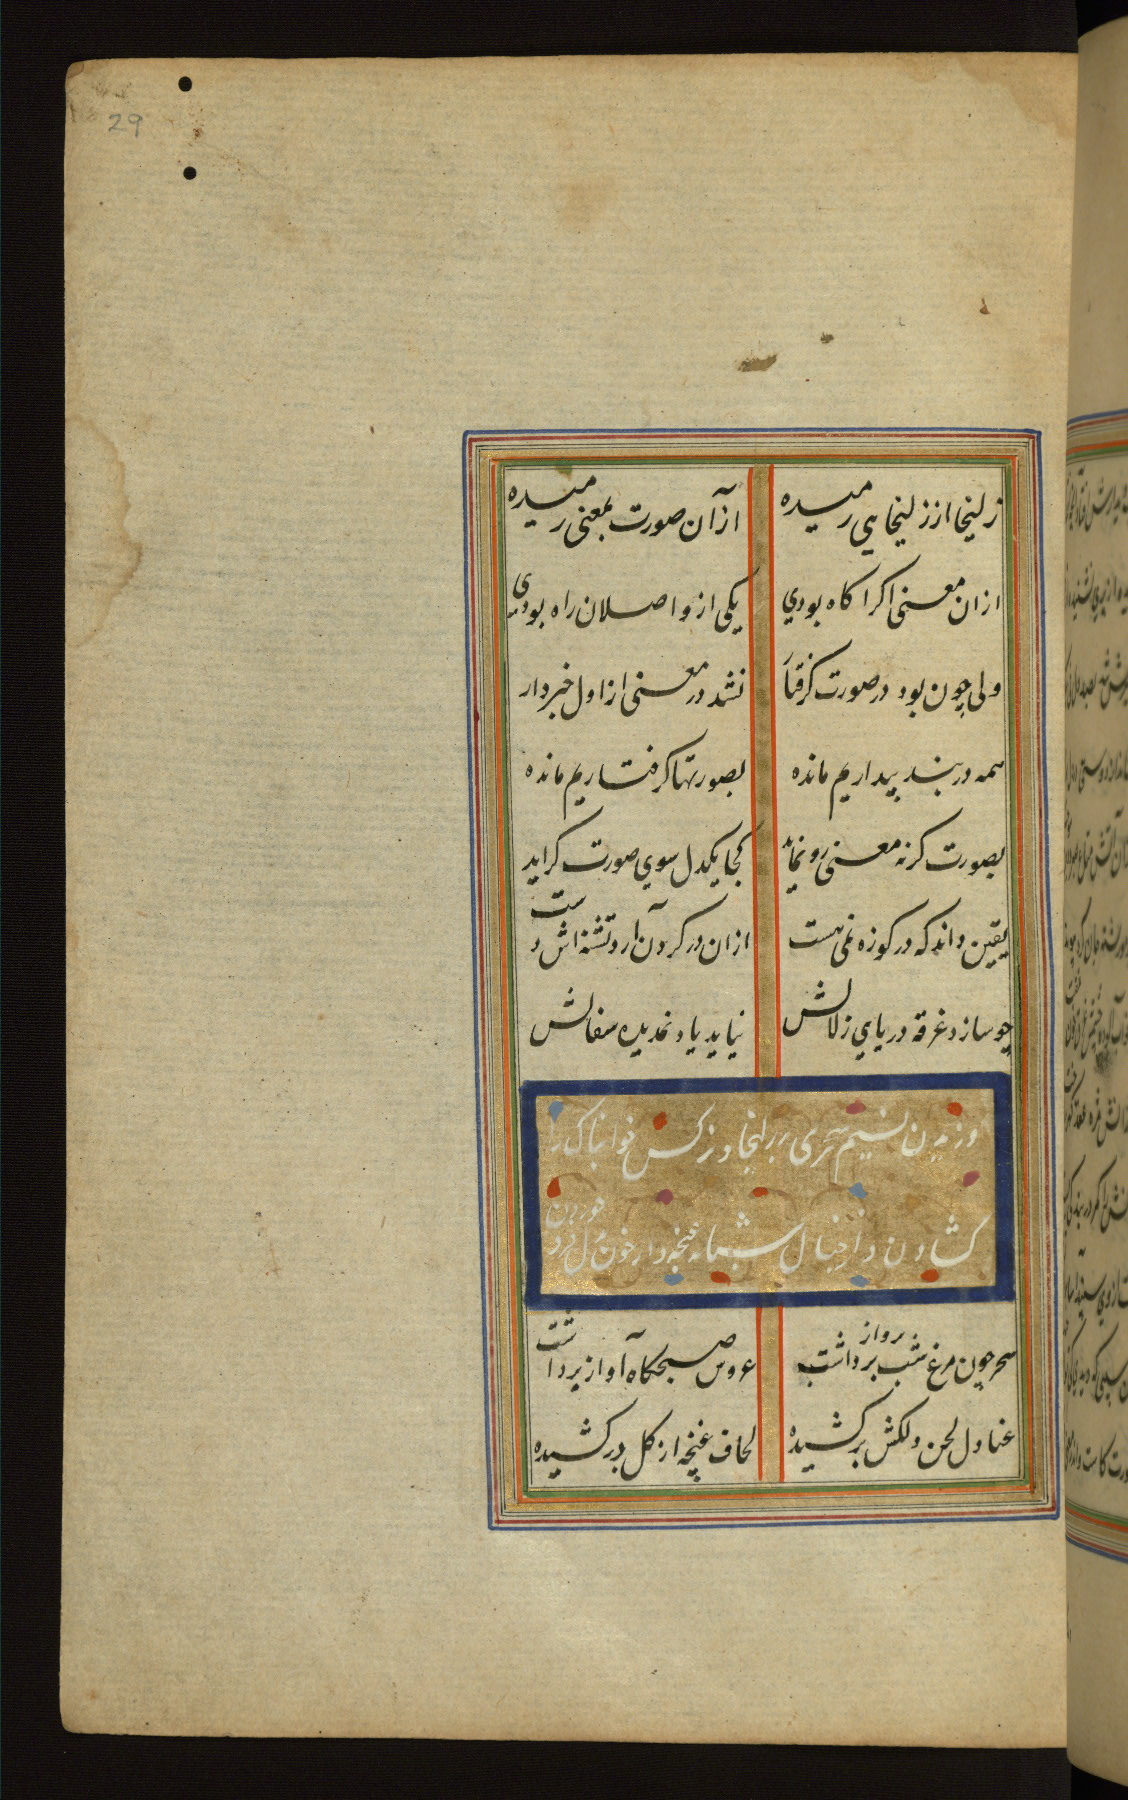 29
زلیخا از زلیخایی رمیده از آن صورت بمعنی رمیده
ازان معنی اکر اکاه بودی یکی از واصلان راه بودی
ولی چون بود در صورت کرفتار نشد در معنی از اول خبردار
همه در بند پنداریم مانده بصورتها کرفتاریم مانده
بصورت کرنه معنی رو نماید کجا یکدل سوی صورت کراید
یقین داند که در کوزه نمی هست ازان در کردن آرد تشنه اش دست
چو سازد غرقه دریای زلالش نیاید یاد نمدیده سفالش
وزیدن نسیم سحری بر زلیخا و نرکس خوابناک را
کشادن و از خیال شبانه غنچه وار خون دل خوردن
سحر چون مرغ شب پرواز برداشت عروس صبحکاه آواز برداشت
عنادل لحن دلکش برکشیده لحاف غنچه از کل درکشیده